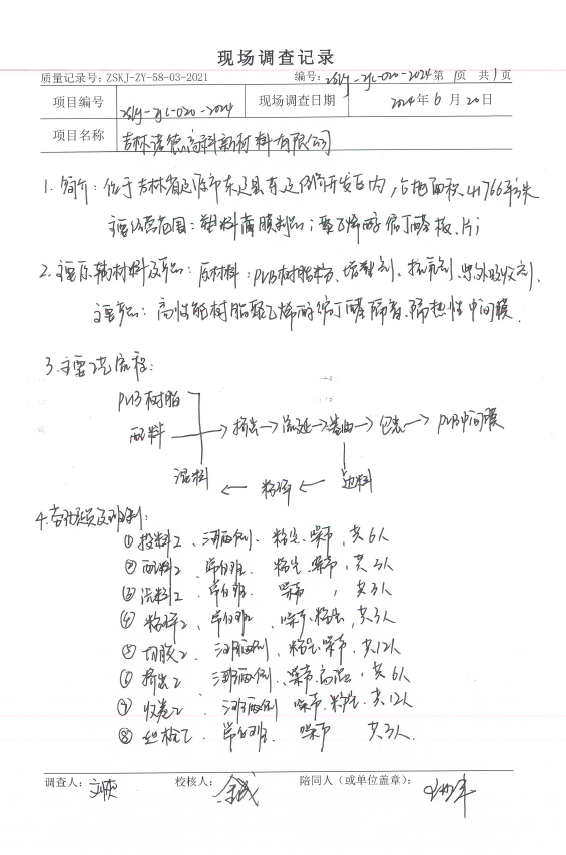 现场调查记录
质量记录号：ZSKJ-ZY-58-03-2021 编号：ZSKJ-ZJC-020-2024 第 1页 共 1 页
项目编号 ZSKJ-ZJC-020-2024 现场调查日期 2024年6月20日
项目名称 吉林诺德高科新材料有限公司
1.简介：位于吉林省辽源市东辽县东辽经济开发区内，占地面积41766平方米
主要经营范围：塑料薄膜制品；聚乙烯醇缩丁醛板、片；
2.主要原辅材料及产品：原材料：PVB树脂粉、增塑剂、抗氧剂、紫外吸收剂、
主要产品：高性能树脂聚乙烯醇缩丁醛隔音、隔热性中间膜.
3.主要工艺流程：
PVB树脂
配料 → 挤出 → 流延 → 收卷 → 包装 → PVB中间膜
混料 ← 粉碎 ← 边料
4.劳动定员及班制：
①投料工、三班两倒、粉尘、噪声，共6人
②配料工、常白班、粉尘、噪声，共3人
③ 料工、常白班、噪声，共3人
④粉碎工、常白班、噪声、粉尘、共3人
⑤切胶工、三班两倒、粉尘、噪声、共12人
⑥挤出工 三班两倒、噪声、高温，共6人
⑦收卷工、三班两倒 噪声、粉尘、共12人
⑧ 检工、常白班、噪声 共3人.
调查人： 校核人： 陪同人（或单位盖章）：